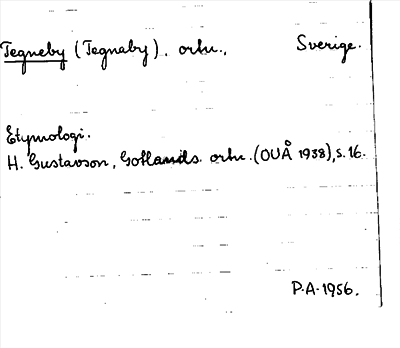 Tegneby (Tegnaby). ortn., Sverige.
Etymologi.
H. Gustavson, Gotlands ortn. (OUÅ 1938), s. 16.
P.A. 1956.